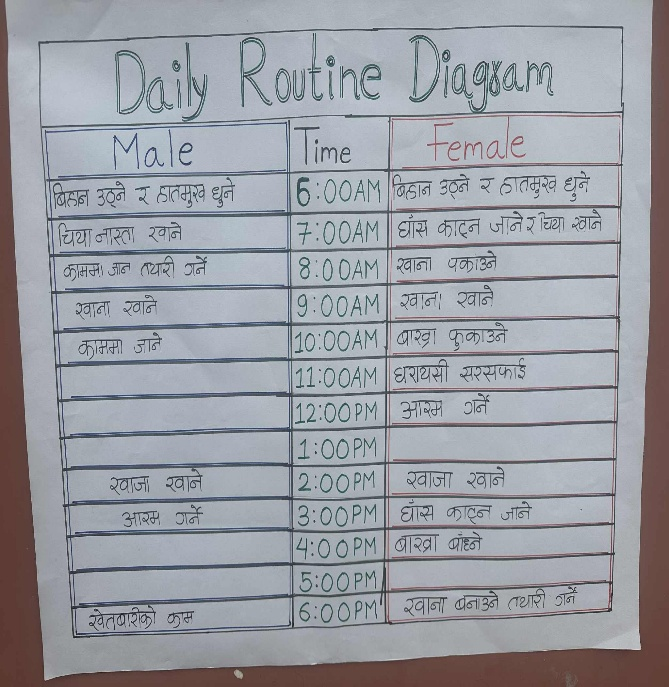 Daily Routine Diagram
Male Time Female
बिहान उठ्ने र हातमुख धुने 6:00AM बिहान उठ्ने र हातमुख धुने
चिया नास्ता खाने 7:00AM घाँस काट्न जाने र चिया खाने
काममा जान तयारी गर्ने 8:00AM खाना पकाउने
खाना खाने 9:00AM खाना खाने
काममा जाने 10:00AM बाख्रा फुकाउने
11:00AM घरायसी सरसफाई
12:00PM आरम गर्ने
1:00PM
खाजा खाने 2:00PM खाजा खाने
आरम गर्ने 3:00PM घाँस काट्न जाने
4:00PM बाख्रा बाँध्ने
5:00PM
खेतबारीको काम 6:00PM खाना बनाउने तयारी गर्ने